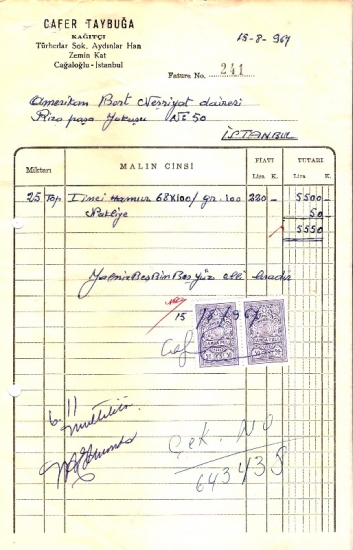 CAFER TAYBUĞA
KAĞITÇI
Türherlar Sok. Aydınlar Han
Zemin Kat
Cağaloğlu - İstanbul
15-8-967
Fatura No. 241
Amerikan Bort Neşriyat dairesi
Rıza paşa Yokuşu No 50
İSTANBUL
Miktarı MALIN CİNSİ FİATI TUTARI
Lira K. Lira K.
25 Top I inci Hamur 68X100/gr. 100 220 — 5500 —
Nakliye 50 —
5550
Yalnız Beş Bin Beş yüz elli liradır
15 / 8 / 967
Çek. NO
643438